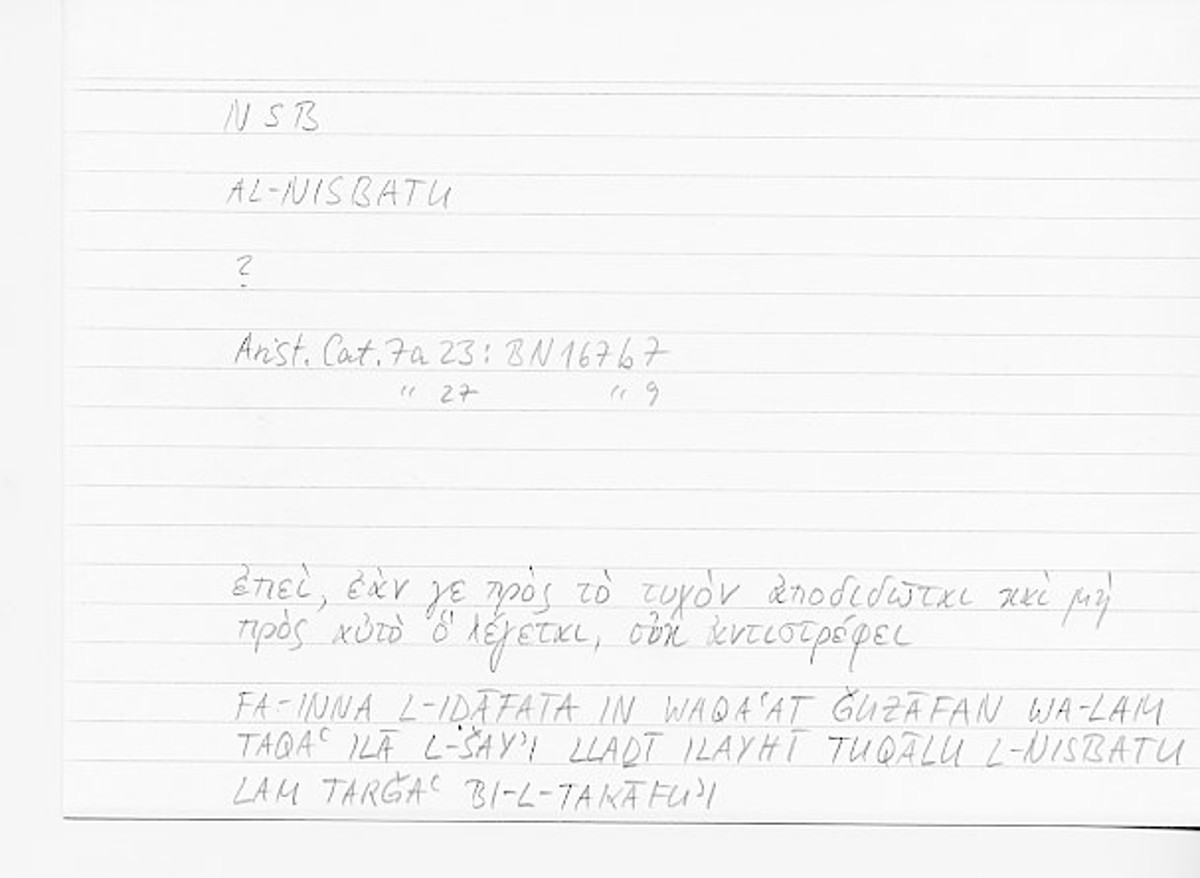 NSB
AL-NISBATU
?
Arist. Cat. 7a 23 : BN 167b7
" 27 " 9
ἐπεί, ἐὰν γε πρὸς τὸ τυχὸν ἀποδιδῶται καὶ μὴ
πρὸς αὐτὸ ὃ λέγεται, οὐκ ἀντιστρέφει
FA-INNA L-IḌĀFATA IN WAQAʿAT ǦUZĀFAN WA-LAM
TAQAʿ ILĀ L-ŠAYʾI LLAḎĪ ILAYHĪ TUQĀLU L-NISBATU
LAM TARǦAʿ BI-L-TAKĀFUʾI